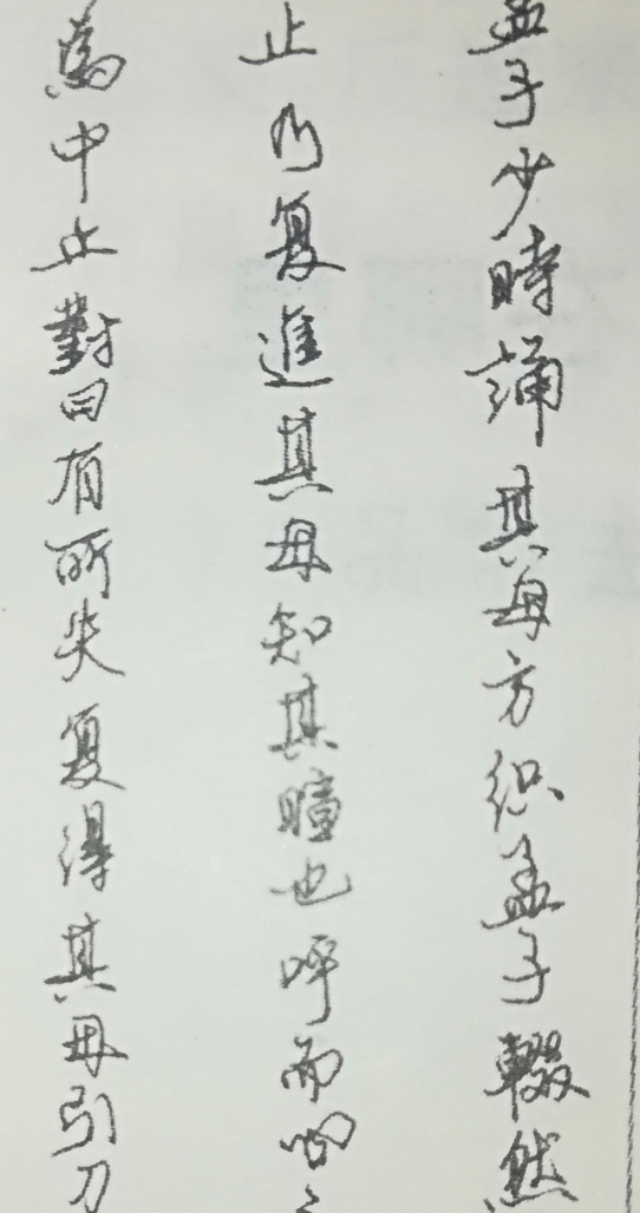 孟子少時誦其母方织孟子輟然
止乃复進其母知其瞳也呼而问之
為中止對曰有所失复得其母引刀